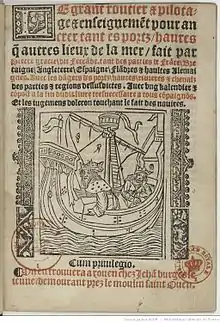 Le grant routier & pilota
ge & enseignemẽt pour an
crer tant es portz / haures
q̃ autres lieux de la mer / fait par
Pierre garcie / dit Ferrãde / tant des parties de Frãce / Bre
taigne / Angleterre / Espaigne / Flãdres & haultes Alemai
gnes. Auec les dãgers des portz / haures / riuieres & chenalz
des parties & regions dessusdictes. Auec vng kalendrier &
cõpost a la fin dudit liure tresnecessaire a tous cõpaignõs.
Et les iugemens doleron touchant le fait des nauires.
Cum priuilegio.
On en trouuera a rouen chez Jehã burges le
ieune / demourant pres le moulin saint Ouen.